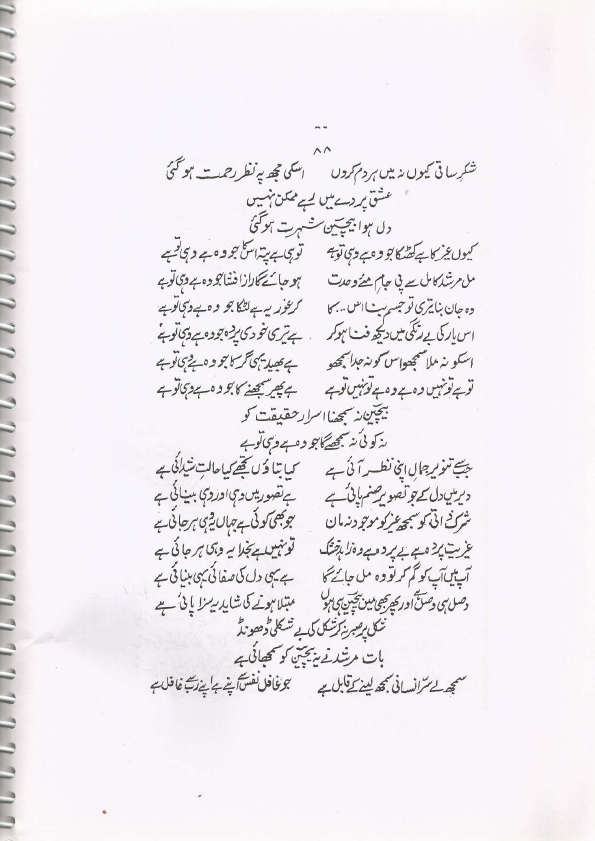 ۸۸
شکرِ ساقی کیوں نہ میں ہر دم کروں اسکی مجھ پہ نظر رحمت ہو گئی
عشق پردے میں رہے ممکن نہیں
دل ہوا بیچین شہرت ہو گئی
کیوں غیر کا ہے کھٹکا جو وہ ہے وہی تو ہے توہی ہے پتہ اسکا جو وہ ہے وہی تو ہے
مل مرشد کامل سے پی جامِ مئے وحدت ہو جائے گا راز افشا جو وہ ہے وہی تو ہے
وہ جان بنا تیری تو جسم بنا اس ... کا کر غور یہ ہے لٹکا جو وہ ہے وہی تو ہے
اس یار کی بے رنگی میں دیکھ فنا ہو کر ہے تیری خودی پردہ جو وہ ہے وہی تو ہے
اسکو نہ ملا سمجھو اس کو نہ جدا سمجھو ہے بھید یہی گر کا جو وہ ہے وہی تو ہے
تو ہے تو نہیں وہ ہے وہ ہے تو نہیں تو ہے ہے پھیر سمجھنے کا جو وہ ہے وہی تو ہے
بیچین نہ سمجھنا اسرار حقیقت کو
نہ کوئی نہ سمجھے گا جو وہ ہے وہی تو ہے
جب سے تنویر جمال اپنی نظر آئی ہے کیا بتاؤں تجھے کیا حالتِ شیدائی ہے
دیر میں دل کے جو تصویر صنم پائی ہے ہے تصور میں وہی اور وہی بینائی ہے
شرک ذاتی کو سمجھ غیر کو موجود نہ مان جو بھی کوئی ہے جہاں وہی ہر جائی ہے
غیریت پردہ ہے بے پردہ ہے وہ زاہد خشک تو نہیں ہے بخدا یہ وہی ہر جائی ہے
آپ میں آپ کو گم کر تو وہ مل جائے گا ہے یہی دل کی صفائی یہی بینائی ہے
وصل ہی وصل ہے اور پھر بھی میں بیچین ہی ہوں مبتلا ہونے کی شاید یہ سزا پائی ہے
شکل پر صبر نہ کر شکل کی بے شکلی ڈھونڈ
بات مرشد نے یہ بیچین کو سمجھائی ہے
سمجھ لے سرّ انسانی سمجھ لینے کے قابل ہے جو غافل نفس سے اپنے ہے اپنے رب سے غافل ہے